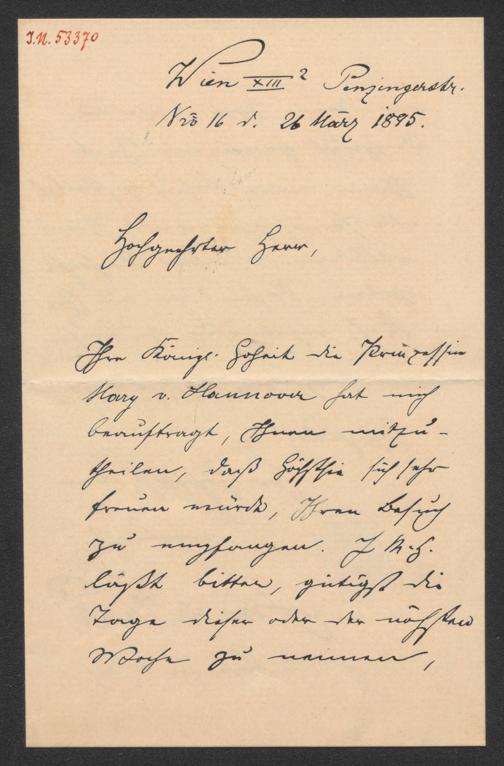 I.N. 53370
Wien XIII² Penzingerstr.
Nro 16 d. 26 März 1895.
Hochgeehrter Herr,
Ihre Königl. Hoheit die Prinzessin
Mary v. Hannover hat mich
beauftragt, Ihnen mitzu-
theilen, daß Höchstsie sich sehr
freuen würde, Ihren Besuch
zu empfangen. I. K. H.
läßt bitten, gütigst die
Tage dieser oder der nächsten
Woche zu nennen,